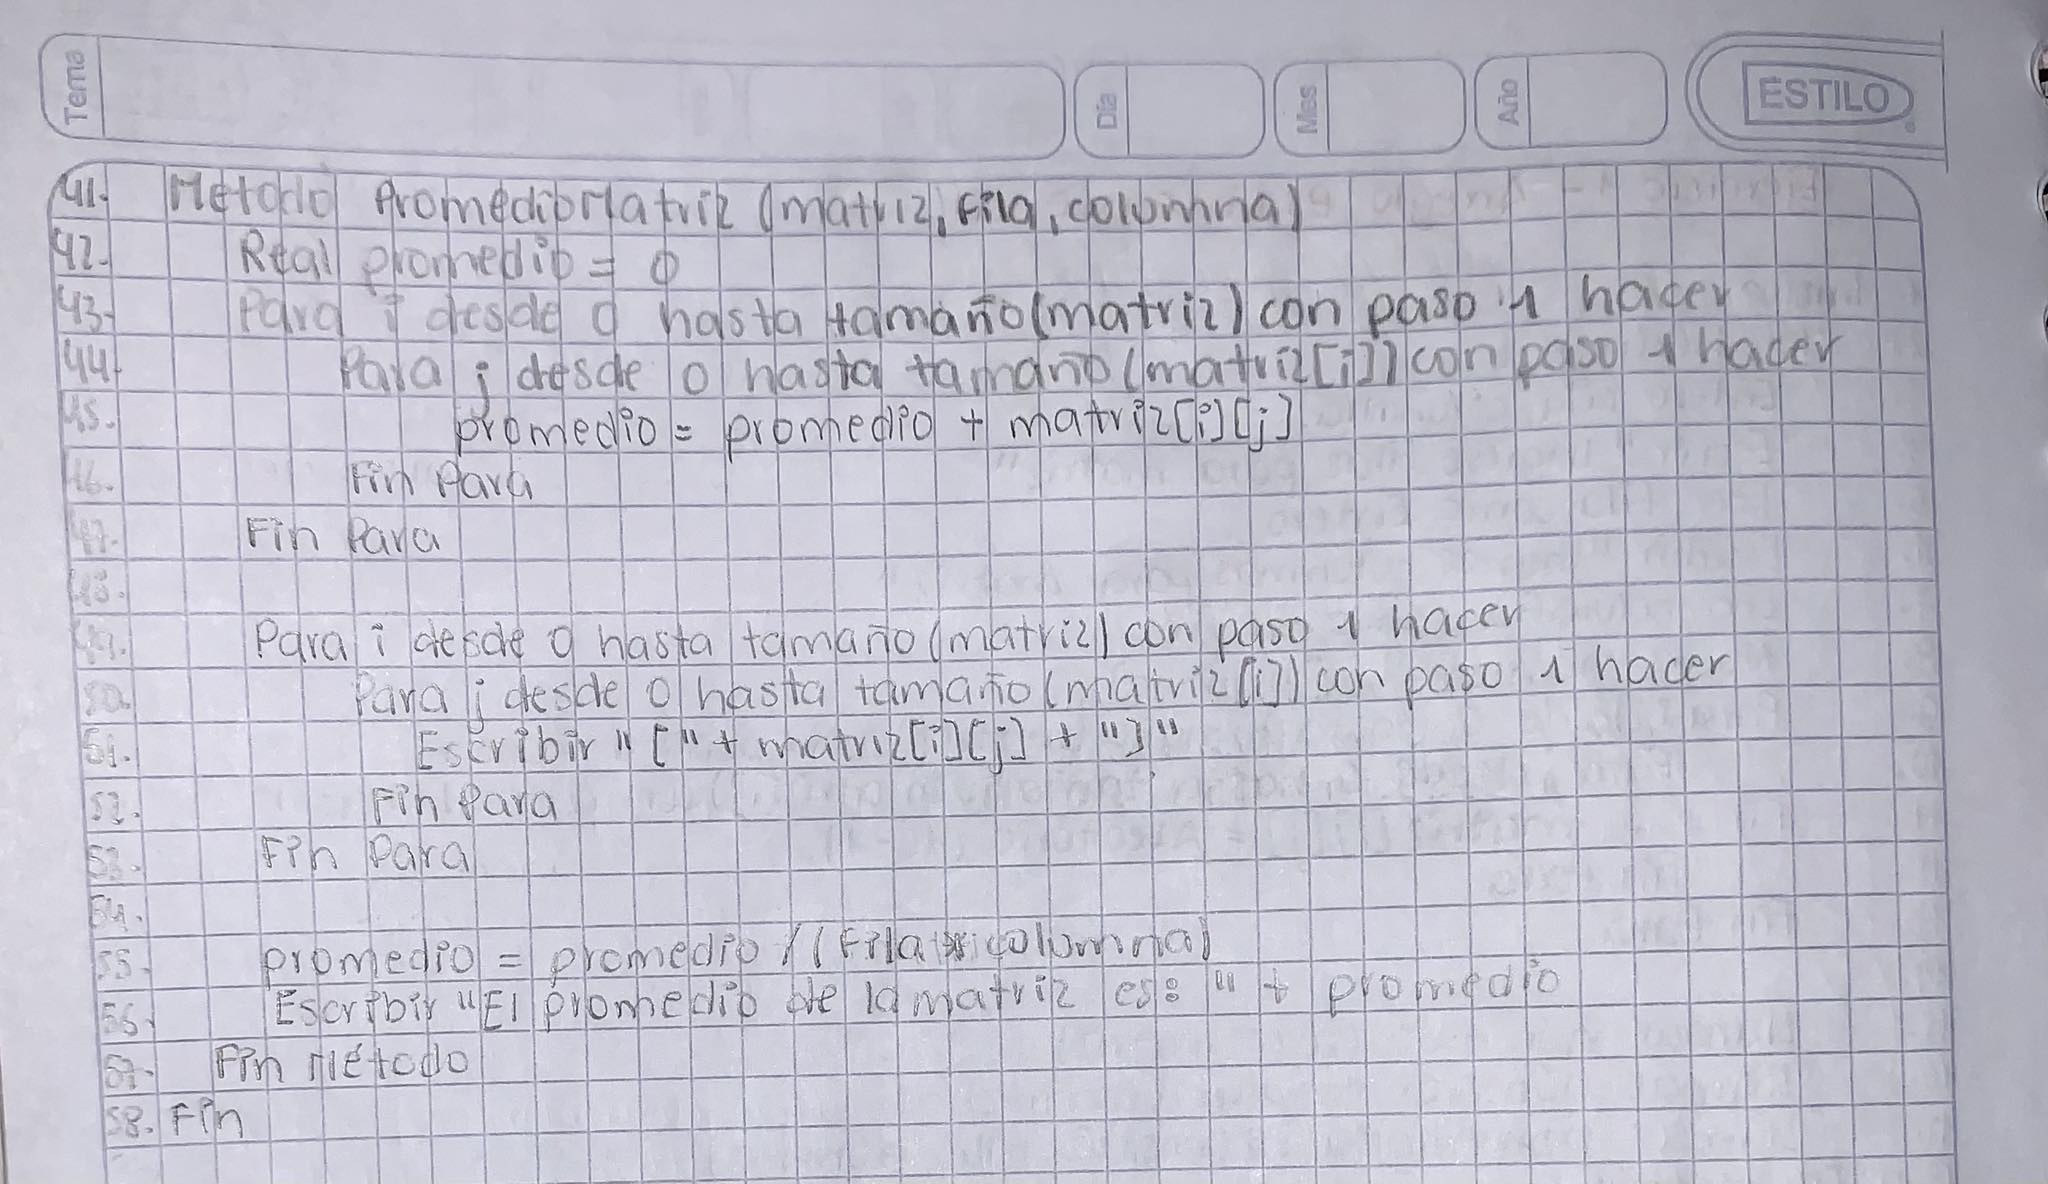 Tema
Día
Mes
Año
ESTILO
41. Método PromedioMatriz (matriz, fila, columna)
42. Real promedio = 0
43. Para i desde 0 hasta tamaño(matriz) con paso 1 hacer
44. Para j desde 0 hasta tamaño (matriz[i]) con paso 1 hacer
45. promedio = promedio + matriz[i][j]
46. Fin Para
47. Fin Para
48.
49. Para i desde 0 hasta tamaño (matriz) con paso 1 hacer
50. Para j desde 0 hasta tamaño (matriz[i]) con paso 1 hacer
51. Escribir "[" + matriz[i][j] + "]"
52. Fin Para
53. Fin Para
54.
55. promedio = promedio / (Fila * columna)
56. Escribir "El promedio de la matriz es: " + promedio
57. Fin Método
58. Fin